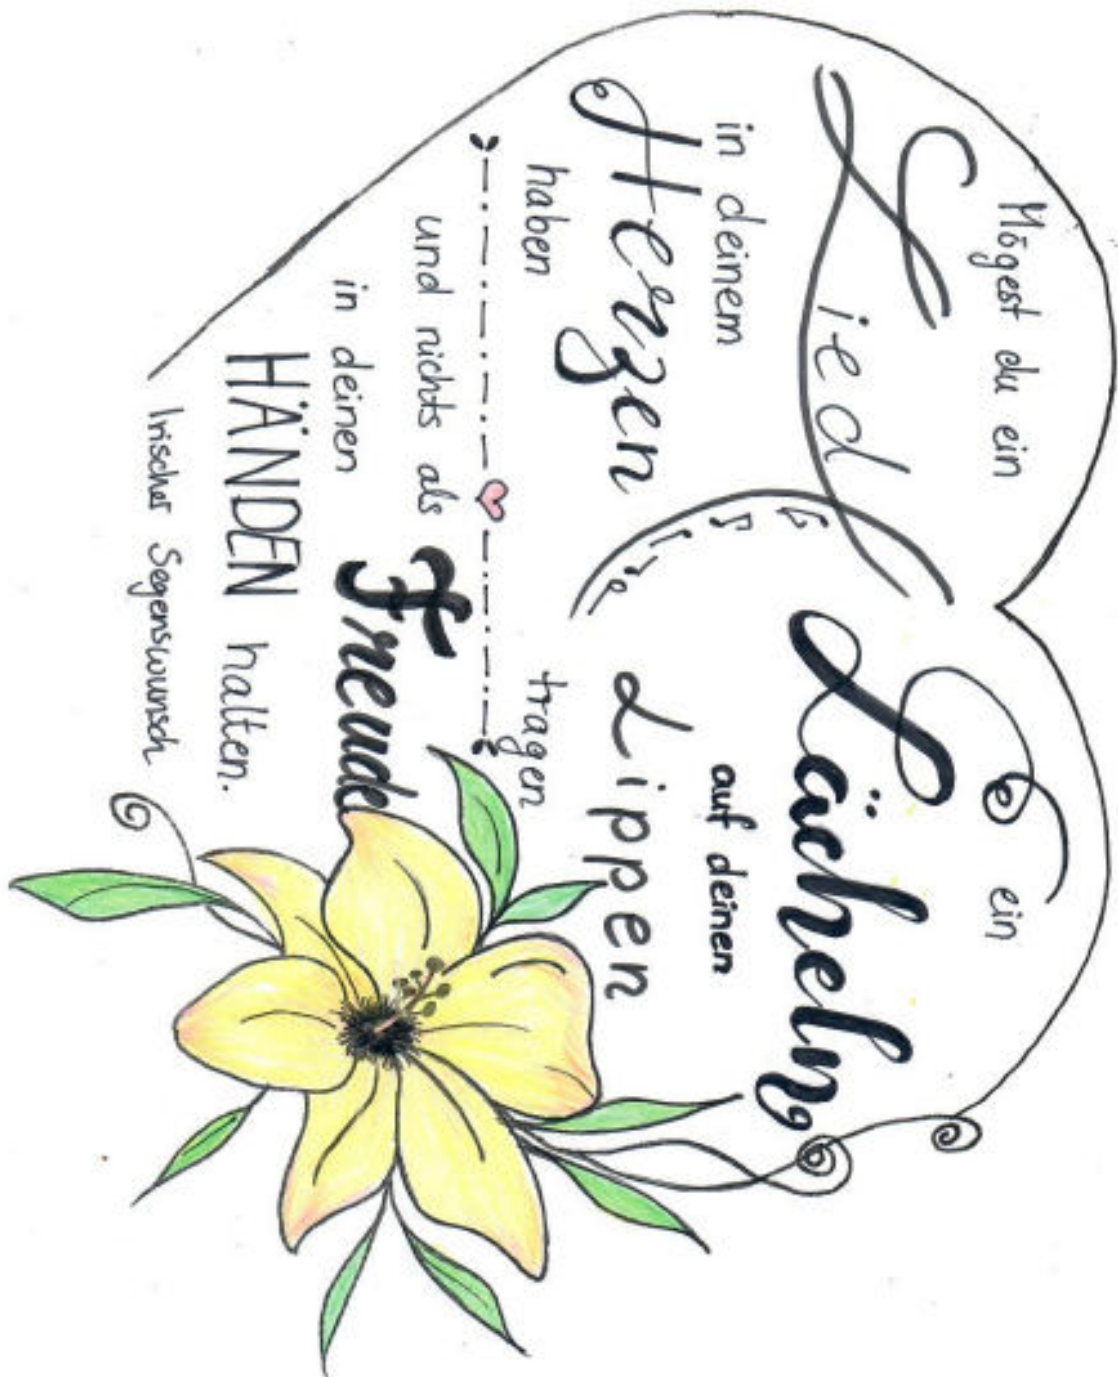 Mögest du ein
Lied
in deinem
Herzen
haben
ein
Lächeln
auf deinen
Lippen
tragen
und nichts als Freude
in deinen
HÄNDEN halten.
Irischer Segenswunsch